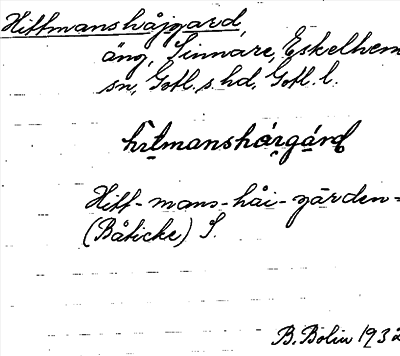 Hiffmanshåjgard,
äng, Sinnare, Eskelhem
sn, Gotl. s. hd, Gotl. l.
hɪtmanshɑ́ɪgɑ́rd
Hitt-mans-håi-gården-
(Båticke) S.
B. Bolin 1932